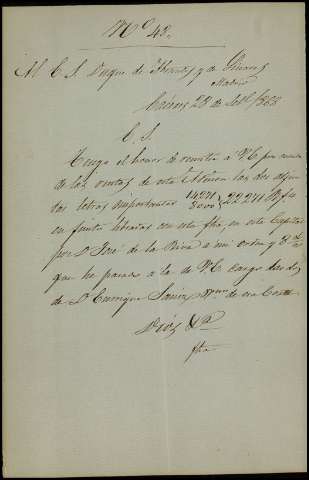 Nº 42.
Al E. S. Duque de Abrantes y de Linares
Madrid
Cáceres 28 de Set.e/868
E. S.
Tengo el honor de remitir a VE por cuenta
de las rentas de esta las dos adjun
tas letras importantes 14271 } 22271 R.s
8000
en juntо libradas con esta fha, en esta Capital
por D José de la Riva a mi orden y 8 d/v
que he pasado a la de VE cargo
de D Enrique de esa Corte
Dios &a
fha